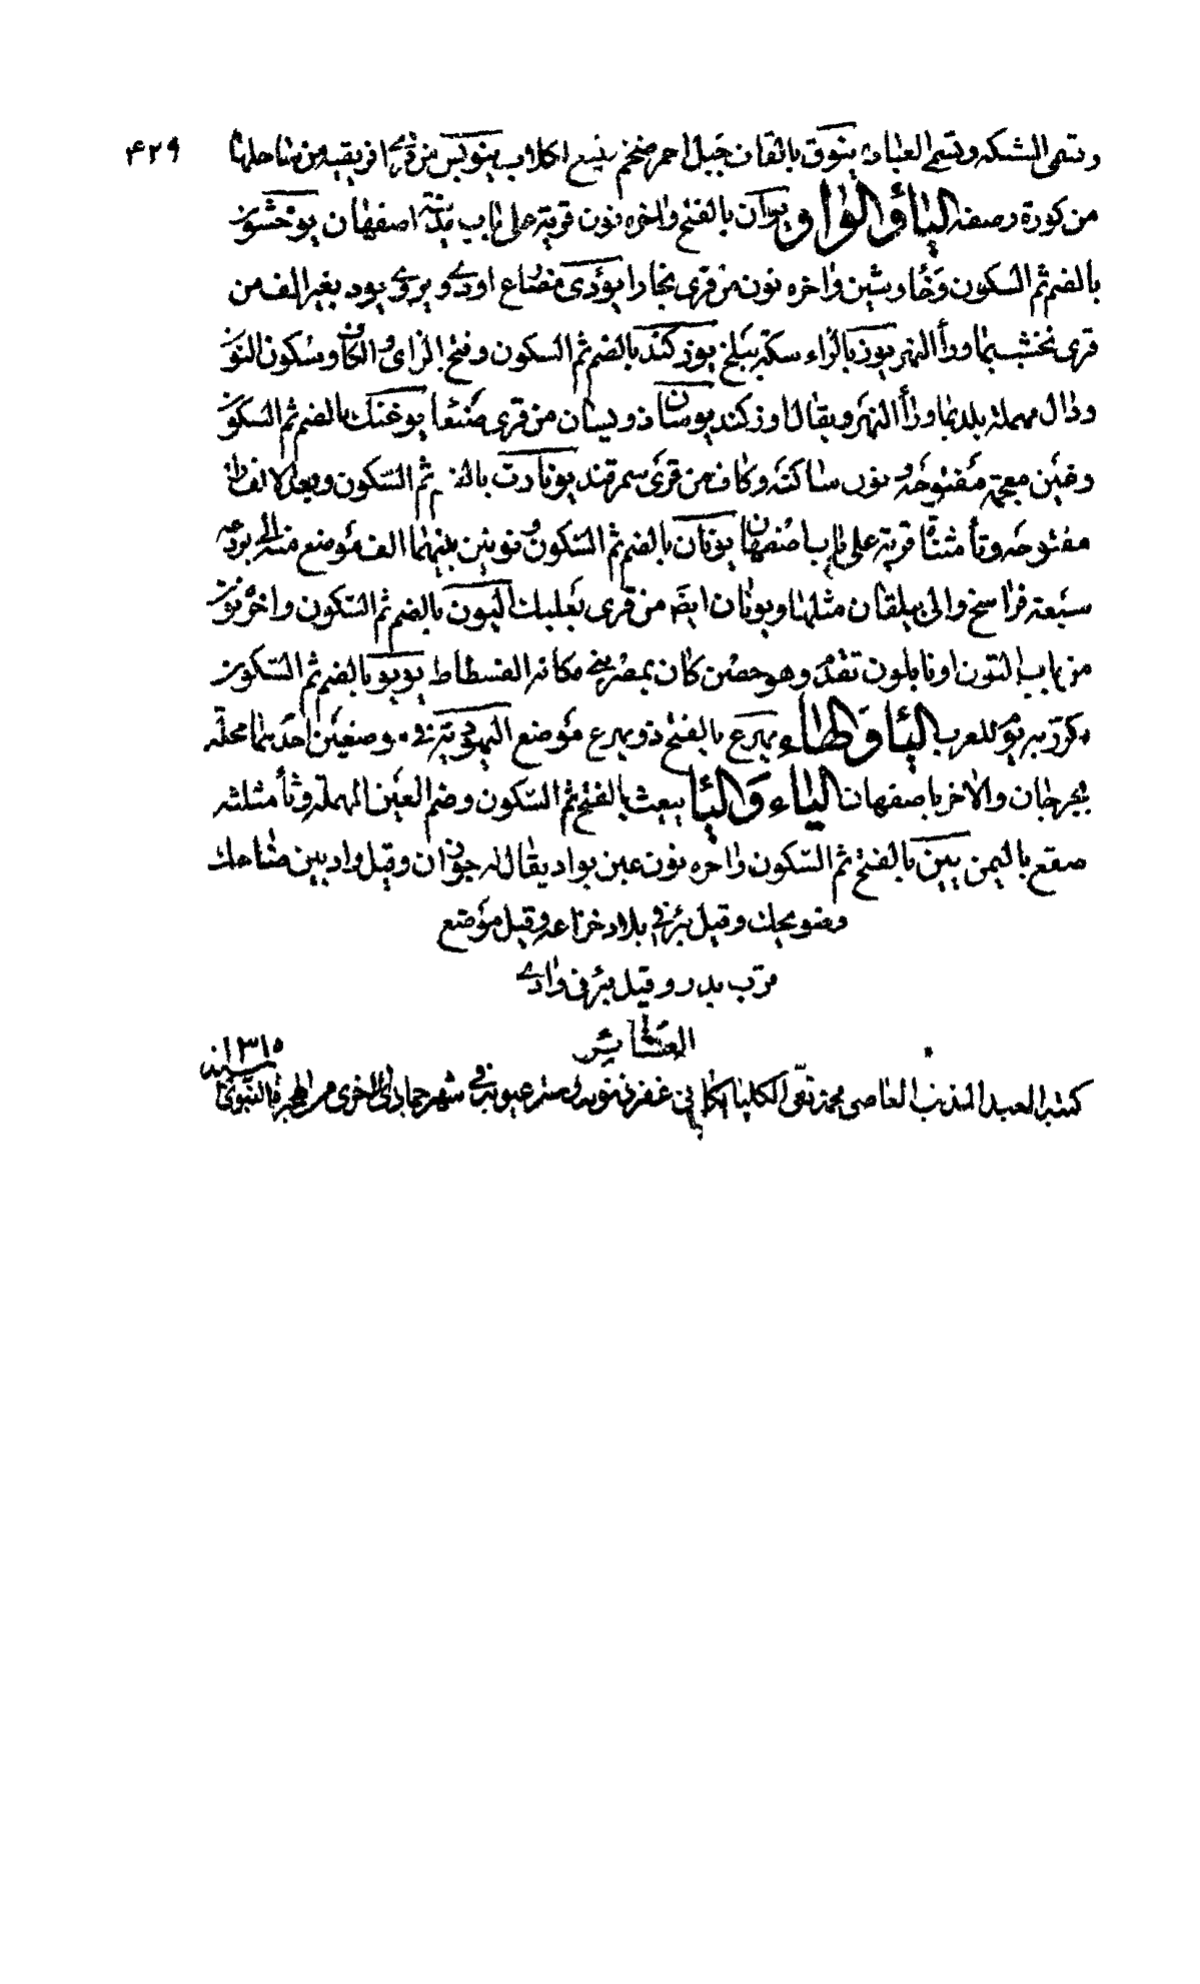 وتسمى الشبكة وتسمى العباية ينوق بالقاف جبل احمر ضخم منيع لكلاب ينويس من قرى افريقيه من ساحلها ۴۲۹
من كورة رصفة الياء والواو يوان بالفتح واخره نون قرية على باب مدينة اصفهان يوخشون
بالضم ثم السكون وخاء وشين واخره نون من قرى بخارا يوذى مضاع اوذى ويروى يوذ بغير الف من
قرى نخشب بما وراء النهر يوز بالزاء سكة ببلخ يوزكند بالضم ثم السكون وفتح الزاى والكاف وسكون النون
ودال مهملة بلد بما وراء النهر ويقال اوزكند يوسان ذو يسان من قرى صنعا يوغنك بالضم ثم السكون
وغين معجمة مفتوحة ونون ساكنة وكاف من قرى سمرقند يونارت بالضم ثم السكون وبعد الالف راء
مفتوحة وتاء مثناة قرية على باب اصفهان يونان بالضم ثم السكون ونونين بينهما الف موضع منه الى بردعه
سبعة فراسخ والى بيلقان مثلها ويونان ايضا من قرى بعلبك اليون بالضم ثم السكون واخره نون
من باب اليون او بابليون تقدم وهو حصن كان بمصر بنى مكانه الفسطاط يويو بالضم ثم السكون
مكرر يوم للعرب الياء والهاء يهرع بالفتح ذو يهرع موضع اليهودية فى موضعين احدهما محلة
بجرجان والاخر باصفهان الياء والياء ييعث بالفتح ثم السكون وضم العين المهملة وثاء مثلثه
صقع باليمن يين بالفتح ثم السكون واخره نون عين بواد يقال له حورتان وقيل واد بين ضاحك
وضويحك وقيل بئر فى بلاد خزاعه وقيل موضع
قرب بدر وقيل بئر فى وادى
العشاير
كتبه العبد المذنب العاصى محمد تقى الكلپايكانى غفر ذنوبه وستر عيوبه فى شهر جمادى الاخرى من الهجرة النبوى
سنه ۱۳۱۵